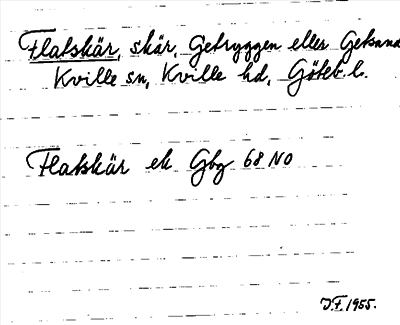 Flatskär, skär, Getryggen eller Getsand
Kville sn, Kville hd, Göteb. l.
Flatskär ek Gbg 68 NO
J.F. 1955.